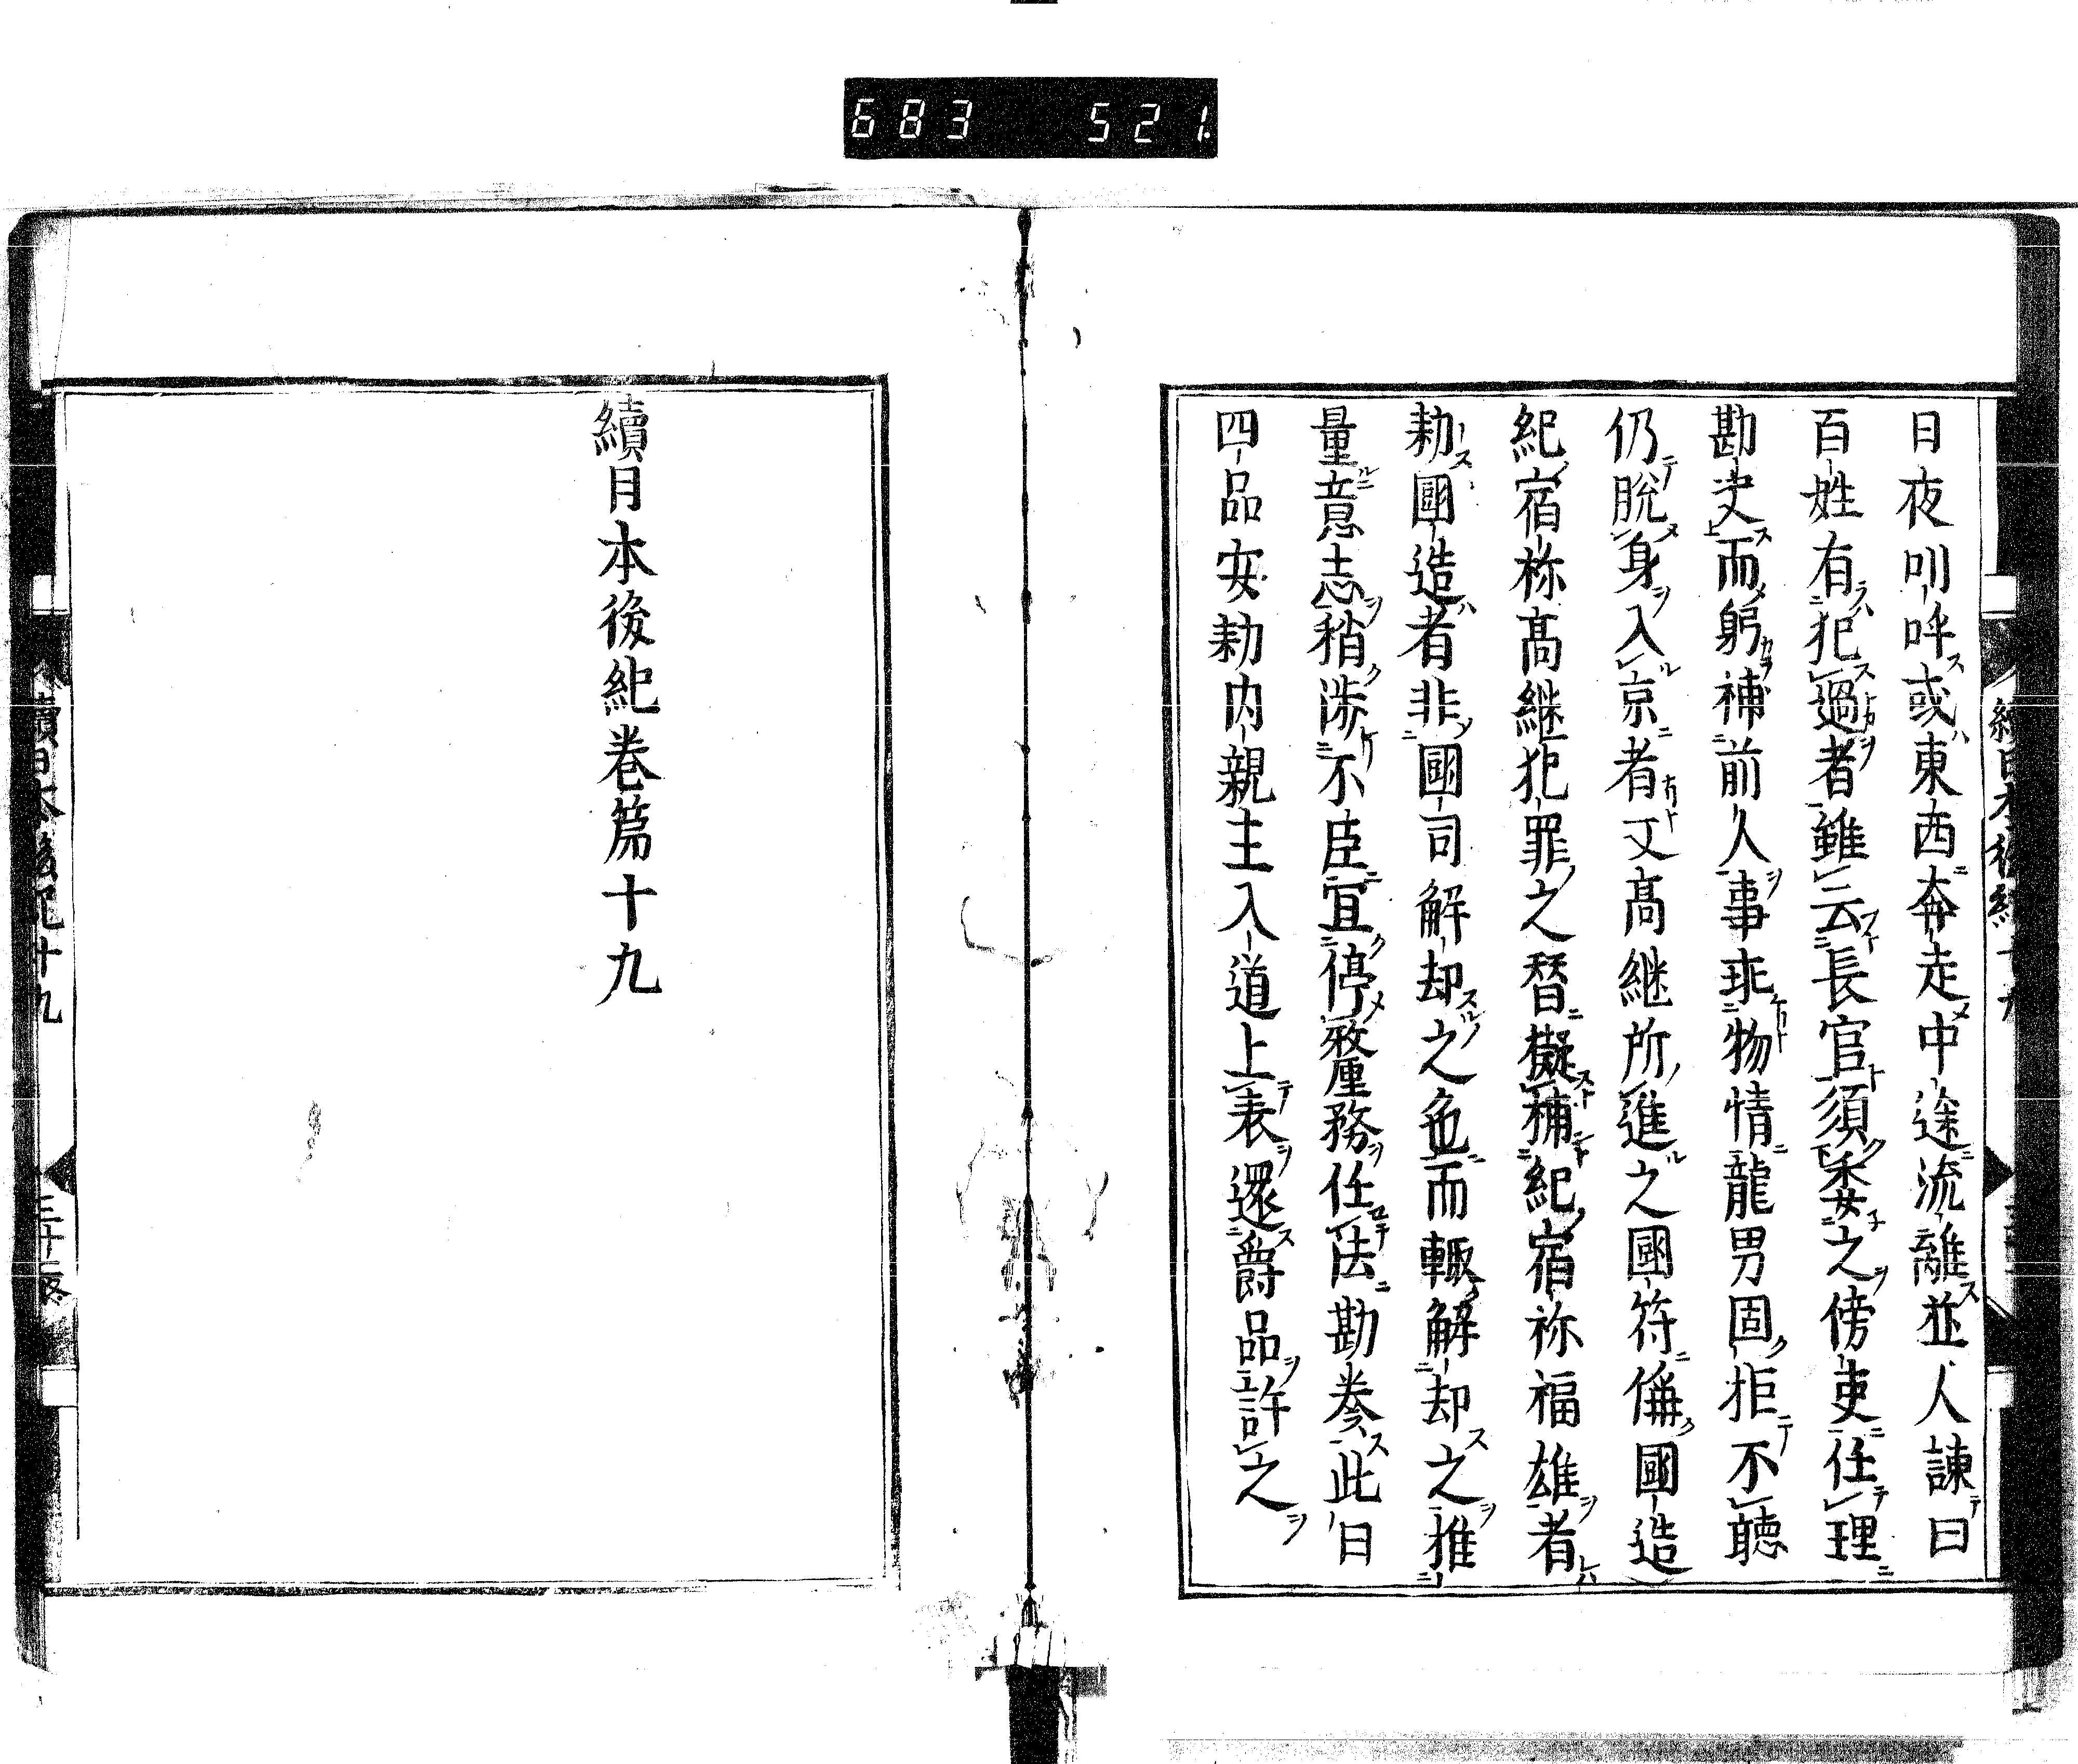 683 521
日夜叫呼或東西奔走中途流離並人諫曰
百姓有犯過者雖云長官須委之傍吏任理
勘決而躬補前人事乖物情龍男固拒不聴
仍脱身入京者又高継所進之國符偁國造
紀宿祢高継犯罪之替擬補紀宿祢福雄者
勅國造者非國司解却之色而輙解却之推
量意志稍渉不臣宜停釐務任法勘奏此日
四品安勅内親王入道上表還爵品許之
續日本後紀巻第十九
續日本後紀十九